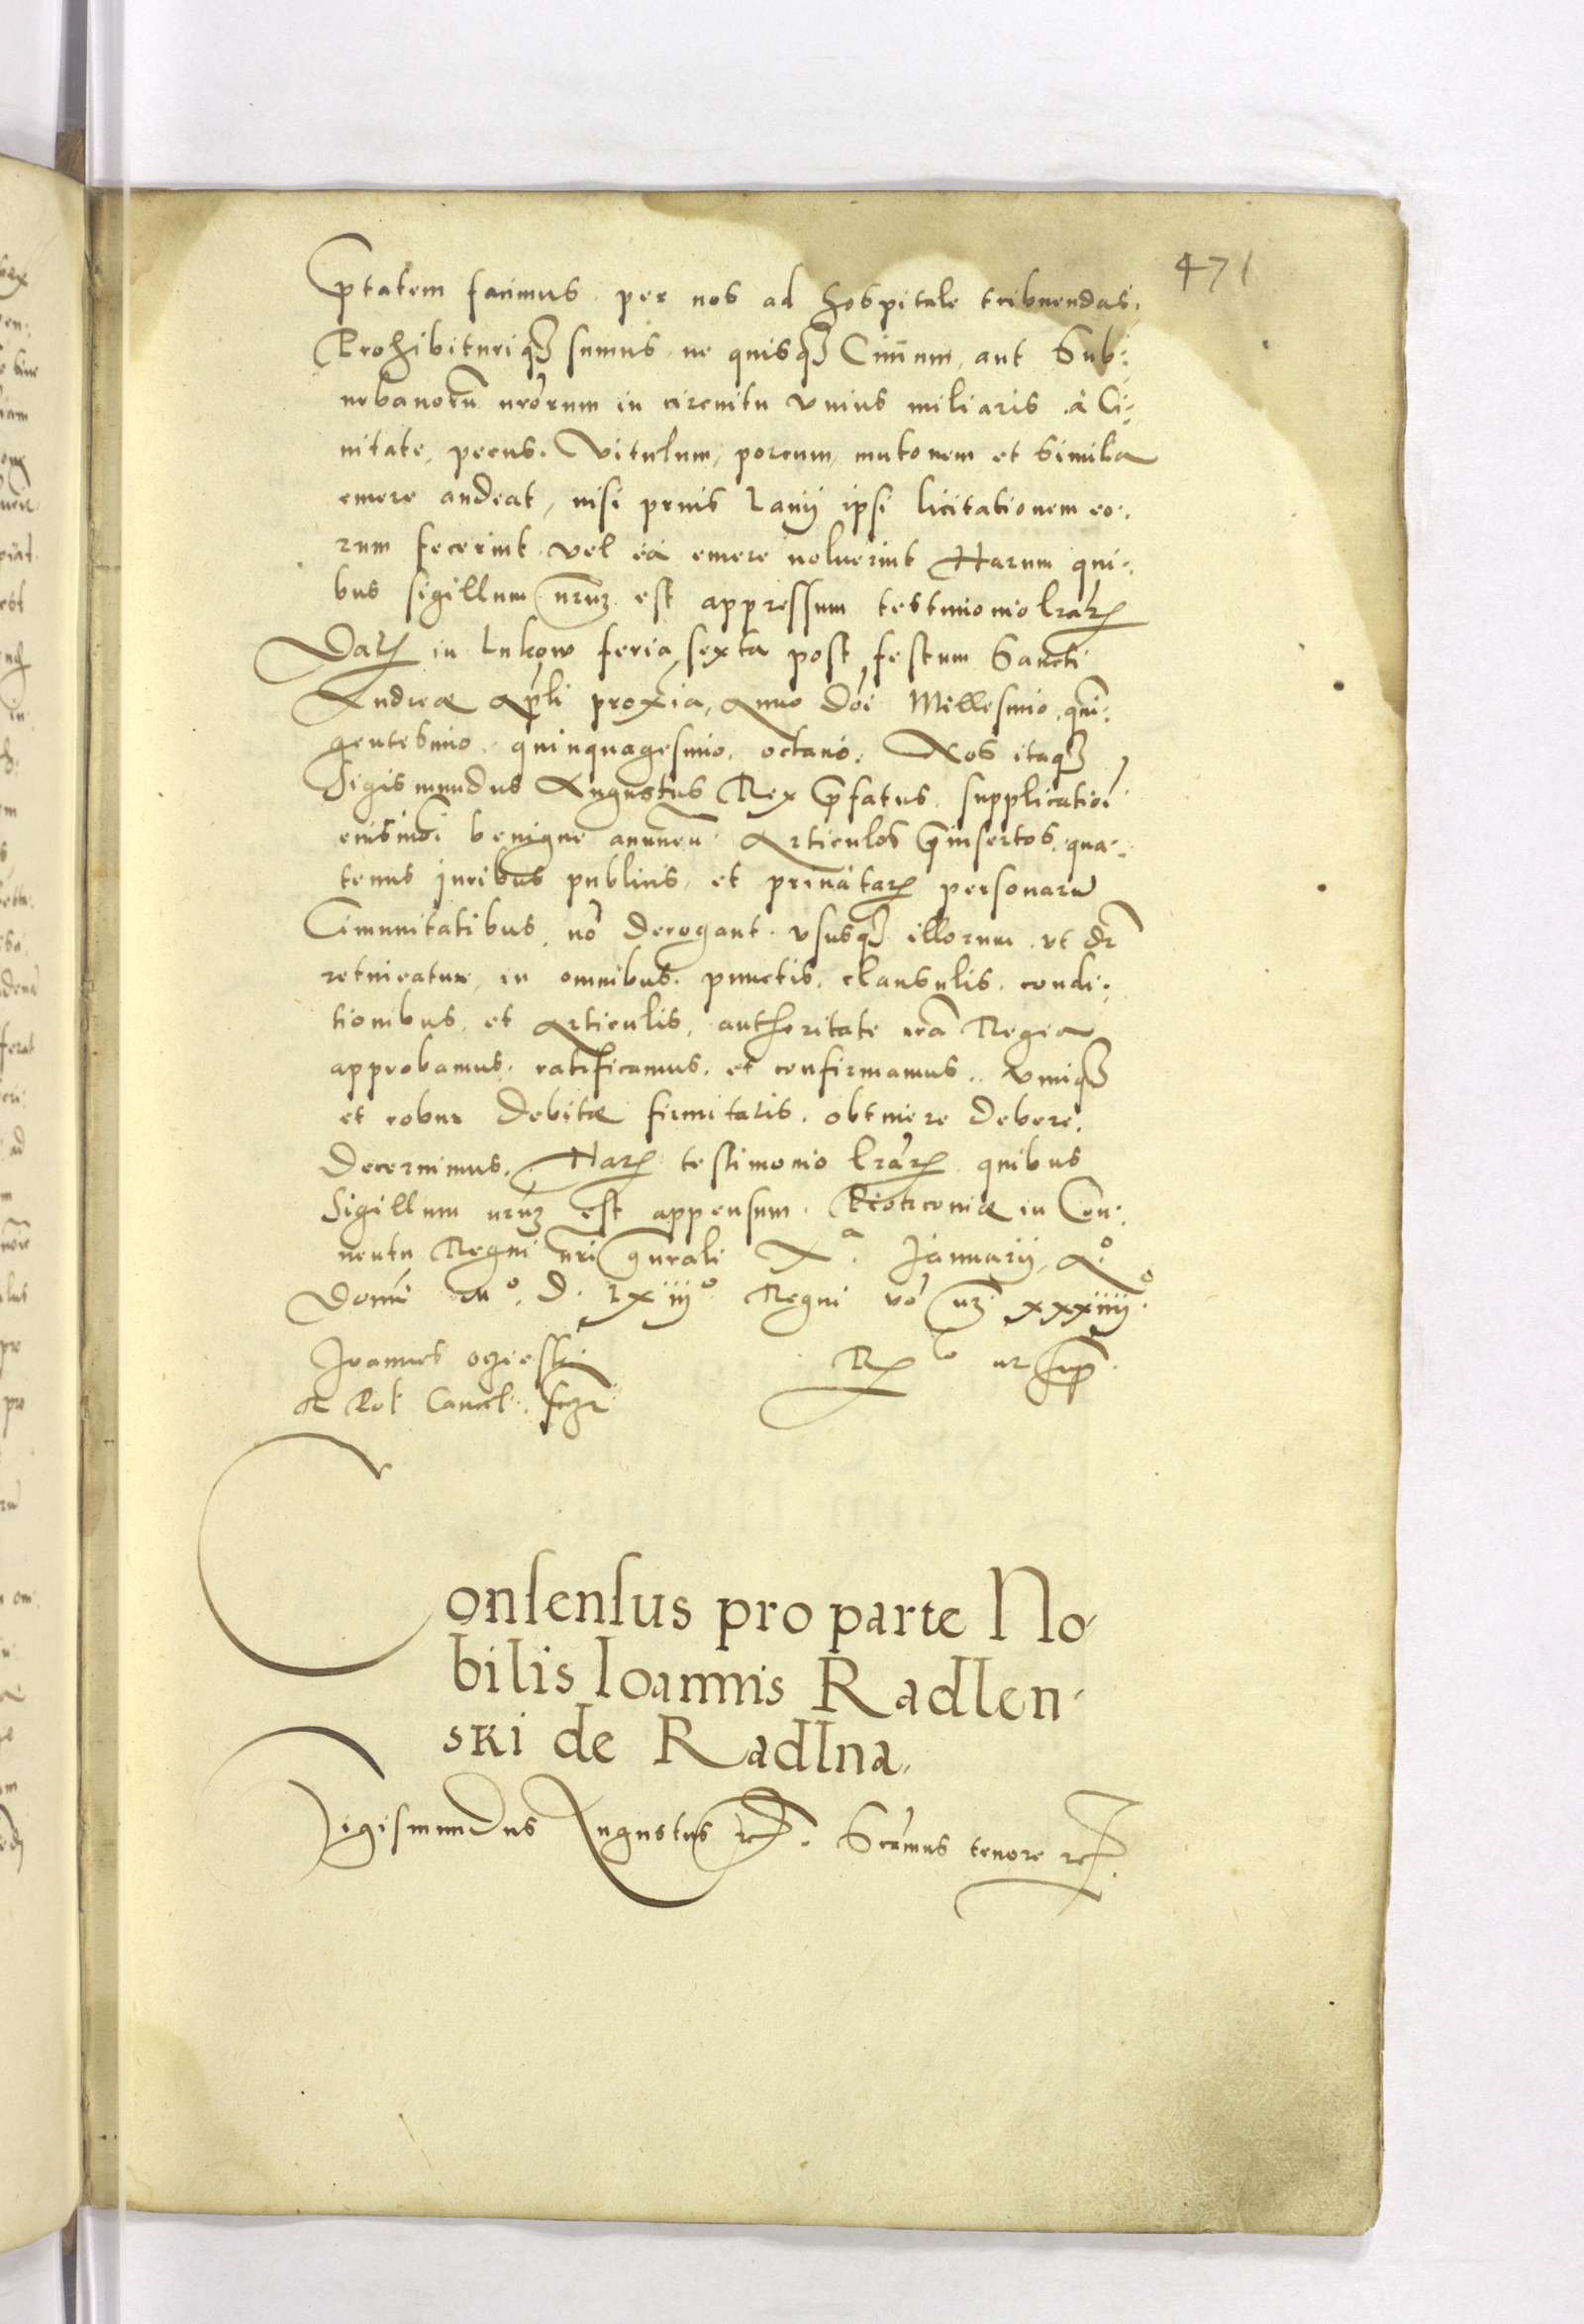 471
ptatem facimus per nos ad hospitale tribuendas.
Prohibituriq3 sumus, ne quisq3 Ciuium, aut Sub:
urbanorū nrōrum in circuitu vnius miliaris à Ci:
uitate, pecus. Vitulum, porcum, mutonem et similia
emere audeat, nisi prius Lanij ipsi licitationem eo:
rum fecerint vel ea emere noluerint Harum qui:
bus sigillum nrūm est appressum testimonio lrārū
Datū in Lukow feria sexta post festum Sancti
Andreæ Apli proxīa, Anno Dōi Millesimo, qui:
gentesimo. quinquagesimo. octauo. Nos itaq3
Sigismundus Augustus Rex p̄fatus. supplicatiōi
eiusmōi benigne annuen̄. Articulos p̄insertos. qua:
tenus juribus publicis, et priuatarū personarū
Cōmunitatibus nō derogant. vsusq3 illorum vt dr̄
retineatur, in omnibus. punctis. clausulis. condi:
tionibus, et Articulis, authoritate nrā Regia
approbamus. ratificamus. et confirmamus. vimq3
et robur debitæ firmitatis. obtinere debere.
Decernimus. Harū testimonio lrārū quibus
Sigillum nrūm est appensum. Piotrcouiæ in Con:
uentu Regni nrī gnrali X.a Januarij A.o
Domī Mo. D. Lxiiijo Regni vō nrī xxxiiijo.
Joannes ocieski
R. P. Cancel.
Rlo ut sup̄.
Consensus pro parte No-
bilis Ioannis Radlen-
ski de Radlna.
Sigismundus Augustus rc. Scrimus tenore rc.